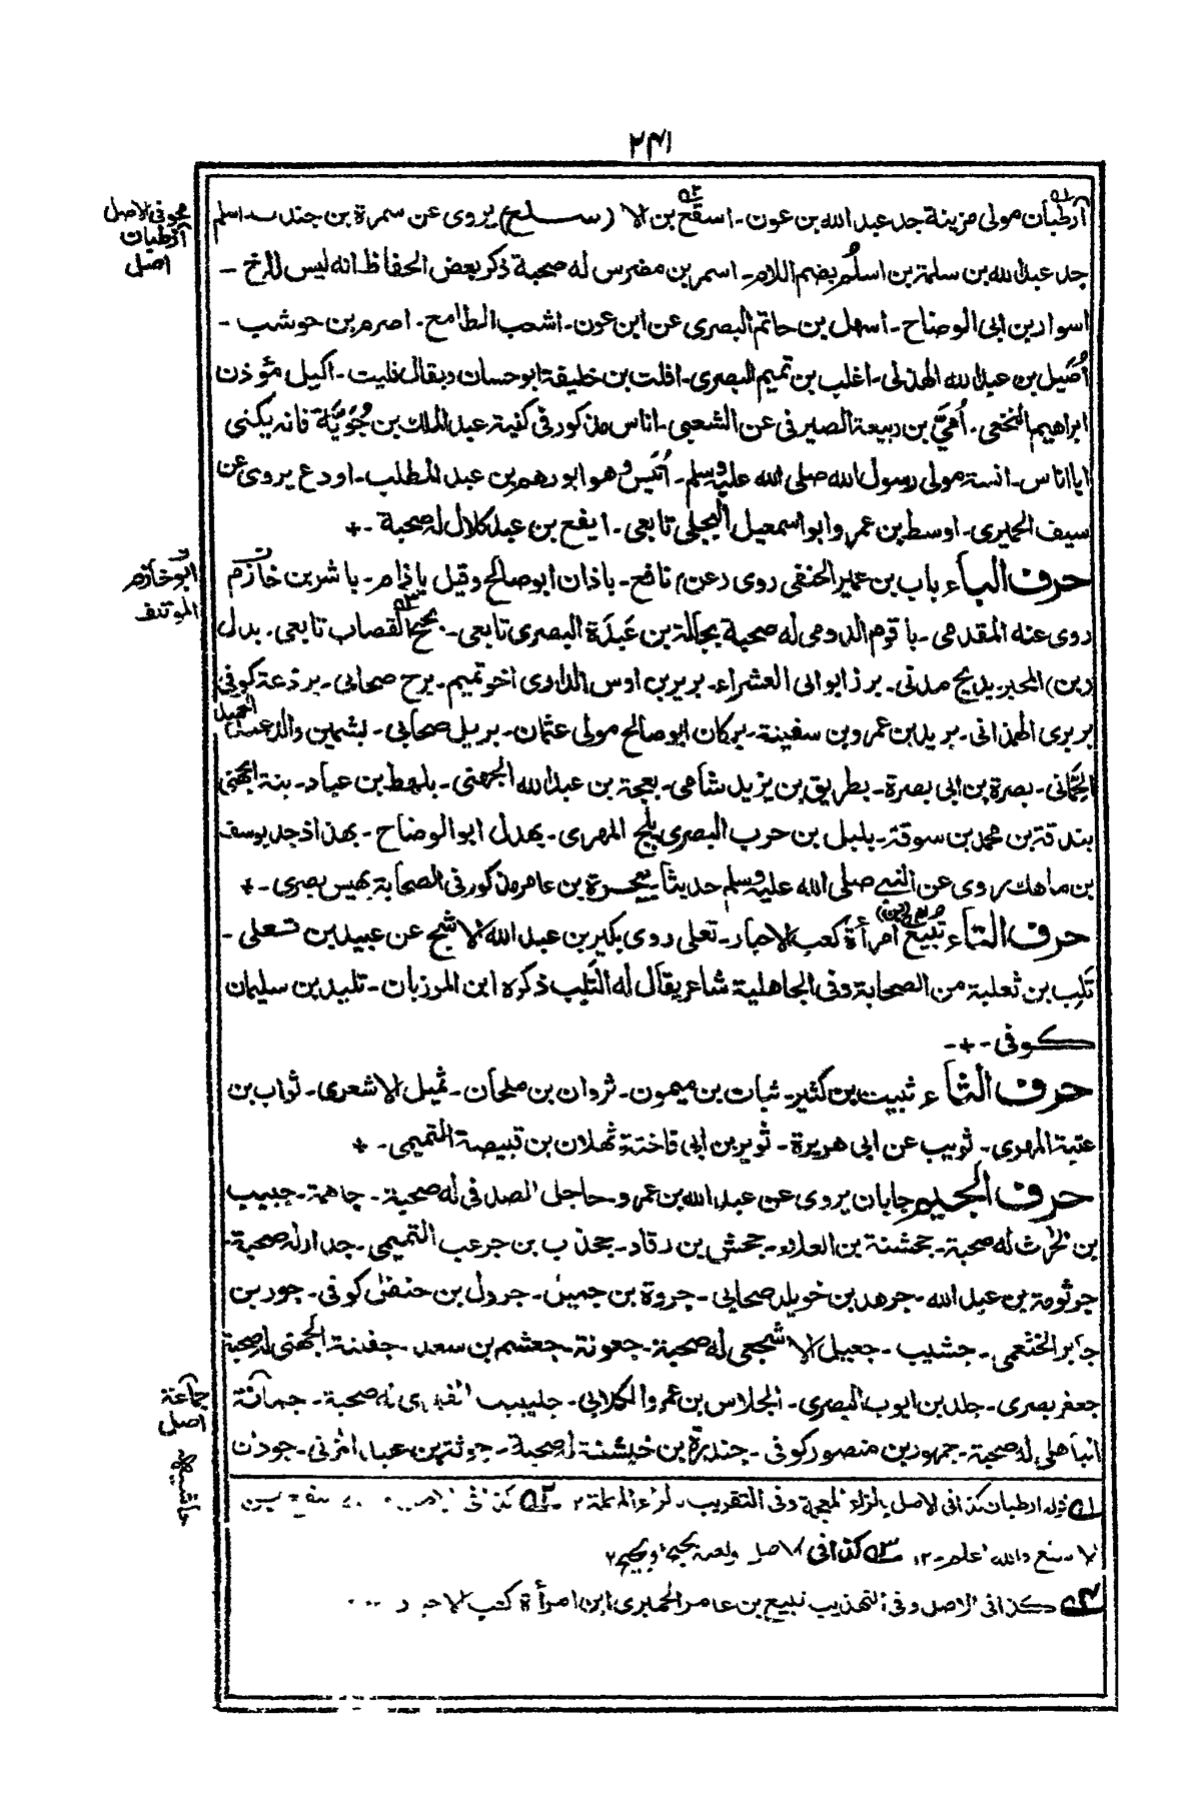 ٢٤١
أرطبان مولى مزينة جد عبد الله بن عون - اسقح بن الا (سلع) يروى عن سمرة بن جندب - اسلم
جد عبد الله بن سلمة بن اسلُم بضم اللام - اسمر بن مضرس له صحبة ذكر بعض الحفاظ انه ليس للاخ -
اسوار بن ابى الوضاح - اسهل بن حاتم البصرى عن ابن عون - اشعب الطامع - اصرم بن حوشب -
أصَيل بن عبد الله الهذلى - اغلب بن تميم البصرى - افلت بن خليفة ابو حسان ويقال فليت - اكيل مؤذن
ابراهيم النخعى - أُمَيّ بن ربيعة الصيرفى عن الشعبى - اناس مذكور فى كنية عبد الملك بن جُوَيَّة فانه يكنى
ابا اناس - انسة مولى رسول الله صلى الله عليه وسلم - أُنَيس وهو ابو رهم بن عبد المطلب - اودع يروى عن
سيف الحميرى - اوسط بن عمرو ابو اسمعيل البجلى تابعى - ايفع بن عبد كلال له صحبة - +
حرف الباء باب بن عمير الحنفى روى (عن) نافع - باذان ابو صالح وقيل باذام - باشر بن خازم
روى عنه المقدمى - باقوم الرومى له صحبة بجالة بن عَبَدَة البصرى تابعى - بحبح القصاب تابعى - بدل
(بن) المحبر بديح مدنى - برز ابو ابى العشراء - برير بن اوس الدارى اخو تميم - برح صحابى - برذعة كوفى
بربرى الهمذانى - بريد بن عمرو بن سفينة - بركان ابو صالح مولى عثمان - بريل صحابى - بشمين والد عبد الحميد
الحِمّانى - بصرة بن ابى بصرة - بطريق بن يزيد شامى - بعجة بن عبد الله الجهنى - بلهط بن عباد - بنة الجهنى
بندقة بن محمد بن سوقة - بلبل بن حرب البصرى بلج المهرى - بهدل ابو الوضاح - بهذاذ جد يوسف
بن ماهك روى عن النبى صلى الله عليه وسلم حديثا - بيحرة بن عامر مذكور فى الصحابة بهيس بصرى - +
حرف التاء تبيع (ابن) امرأة كعب الاحبار - تعلى روى بكير بن عبد الله الاشج عن عبيد بن تعلى -
تَلِب بن ثعلبة من الصحابة وفى الجاهلية شاعر يقال له التَلِب ذكره ابن المرزبان - تليد بن سليمان
كوفى - + -
حرف الثاء ثبيت بن كثير - ثبات بن ميمون - ثروان بن ملحان - ثميل الاشعرى - ثواب بن
عتبة المهرى - ثويب عن ابى هريرة - ثوير بن ابى فاختة ثهلان بن قبيصة التميمى - +
حرف الجيم جابان يروى عن عبد الله بن عمرو - حاجل الصدفى له صحبة - جاهمة - جبيب
بن الحارث له صحبة - جحشنة بن العلاء - جحش بن رقاد - جخدب بن جرعب التميمى - جدار له صحبة
جرثومة بن عبد الله - جرهد بن خويلد صحابى - جروة بن جميل - جرول بن حنفل كوفى - جور بن
جابر الخثعمى - جشيب - جعيل الاشجعى له صحبة - جعونة - جعشم بن سعد - جفنة الجهنى له صحبة
جعفر بصرى - جلد بن ايوب البصرى - الجلاس بن عمرو الكلابى - جليبيب الفهرى له صحبة - جمانة
الباهلى له صحبة - جمهور بن منصور كوفى - جندرة بن خيشنة له صحبة - جوثة بن عبيد المزنى - جودان
هو فى الاصل
أرطبان
اصل
ابو خازم
الموتلف
جماعة
اصل
حاشيه
١؎ قوله ارطبان كذا فى الاصل بالزاء المعجمة وفى التقريب - لراء المهملة ٢ - ٢؎ كذا فى
الا سقع والله اعلم - ١٢ ٣؎ كذا فى الاصل ولعله
٤؎ كذا فى الاصل وفى التهذيب تبيع بن عامر الحميرى ابن امرأة كعب الاحبار